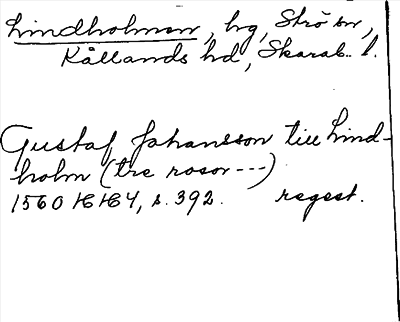 Lindholmen, hg, Strö sn,
Kållands hd, Skarab. l.
Gustaf Johansson till Lind-
holm (tre rosor ---)
1560 HH 4, s. 392. regest.